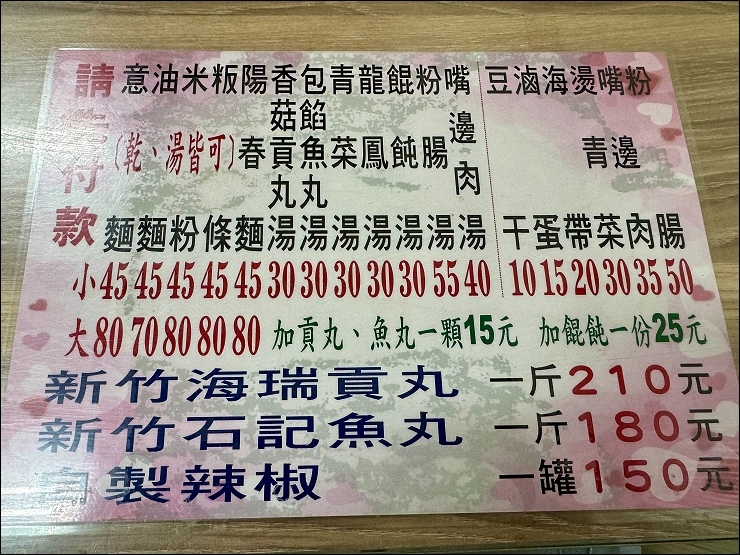 請先付款
意麵
油麵
米粉
粄條
陽春麵
(乾、湯皆可)
香菇貢丸湯
包餡魚丸湯
青菜湯
龍鳳湯
餛飩湯
粉腸湯
嘴邊肉湯
豆干
滷蛋
海帶
燙青菜
嘴邊肉
粉腸
小 45 45 45 45 45 30 30 30 30 30 55 40 10 15 20 30 35 50
大 80 70 80 80 80 加貢丸、魚丸一顆15元 加餛飩一份25元
新竹海瑞貢丸 一斤210元
新竹石記魚丸 一斤180元
自製辣椒 一罐150元